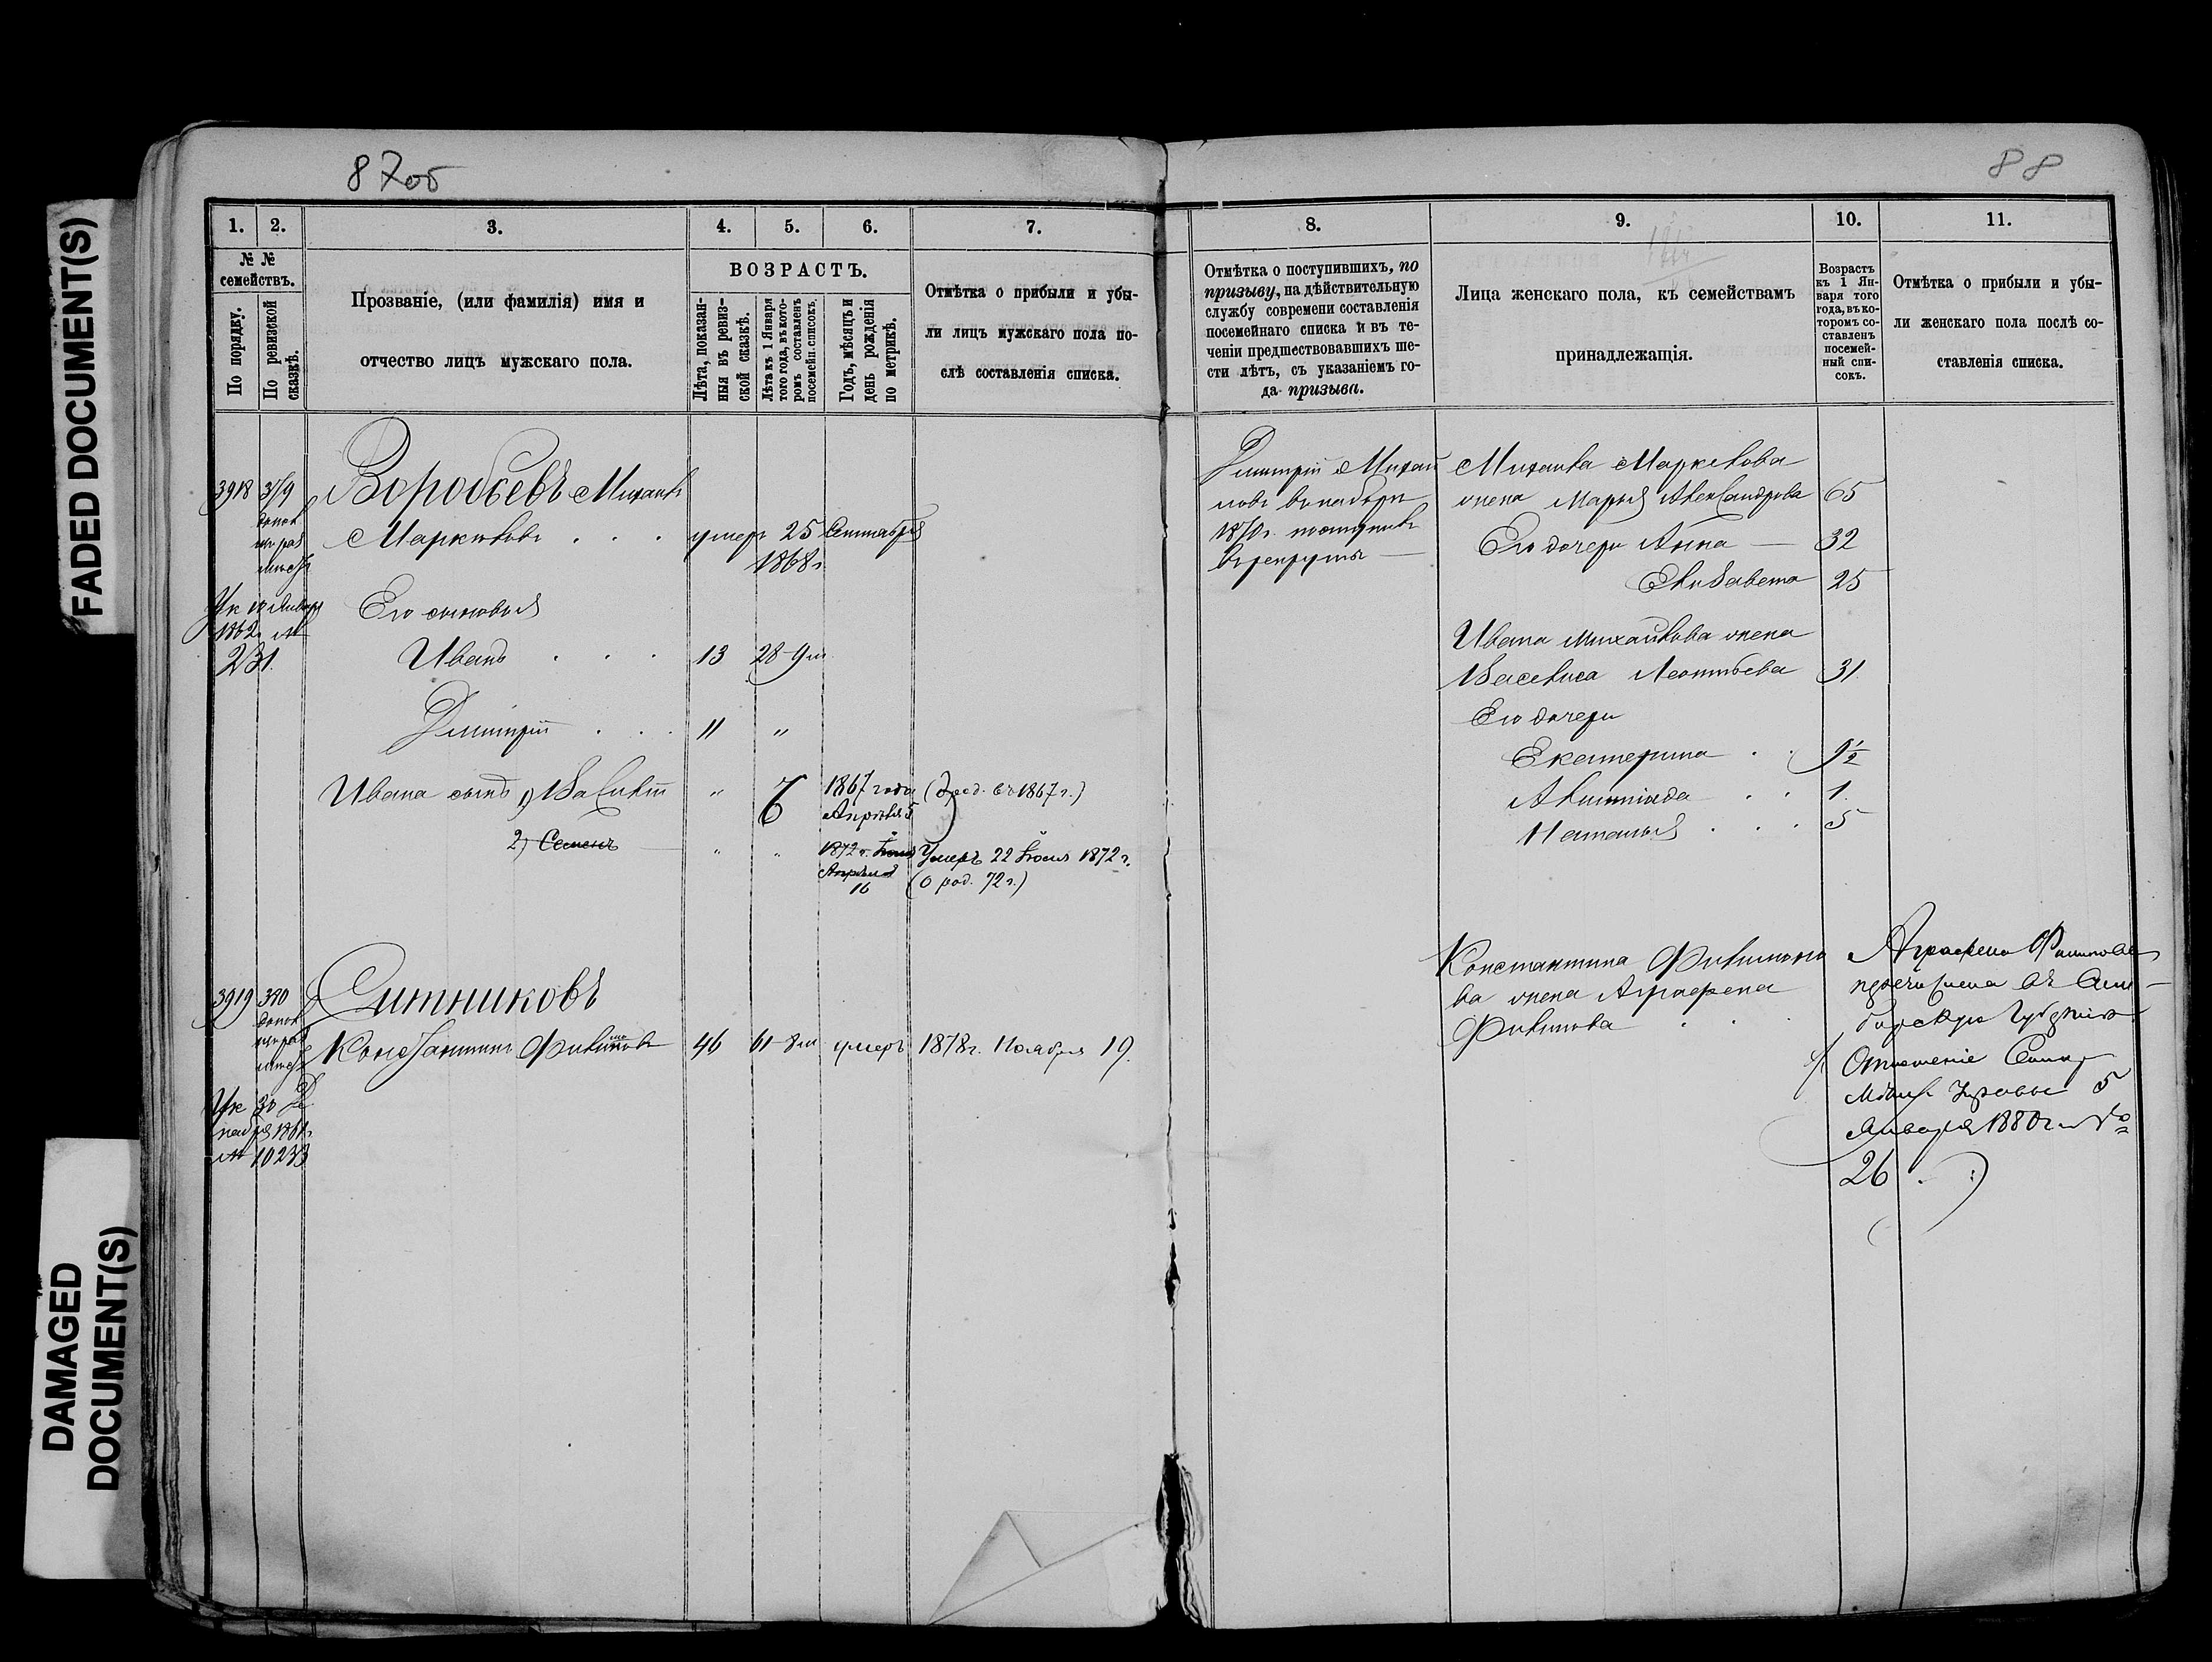 FADED DOCUMENT(S)
DAMAGED
DOCUMENT(S)
87об
1. 2. 3. 4. 5. 6. 7.
№ №
семействъ.
По порядку.
По ревизской
сказкѣ.
Прозваніе, (или фамилія) имя и
отчество лицъ мужскаго пола.
ВОЗРАСТЪ.
Лѣта, показан-
ныя въ ревиз-
ской сказкѣ.
Лѣта къ 1 Января
того года, въ кото-
ромъ составленъ
посемейн. списокъ.
Годъ, мѣсяцъ и
день рожденія
по метрикѣ.
Отмѣтка о прибыли и убы-
ли лицъ мужскаго пола по-
слѣ составленія списка.
3918
Воробьевъ Михаилъ
умеръ 25 Сентября
1868 г.
Ук
1862 г. №
231.
Его сыновья
Иванъ . . . 13 28-9 м
Дмитрій . . . 11 "
Ивана сынъ 1) " 6 1867 года (О род. въ 1867 г.)
Апрѣля 5
2) Семенъ " " 1872 г. Умеръ 22 Іюня 1872 г.
16 (О род. 72 г.)
3919
Ситниковъ
Константинъ 46 61-8 м умеръ 1878 г. Ноября 19.
Ук 30 Де
кабря 1861 г.
№ 10233
88
8. 9. 10. 11.
Отмѣтка о поступившихъ, по
призыву, на дѣйствительную
службу современи составленія
посемейнаго списка и въ те-
ченіи предшествовавшихъ ше-
сти лѣтъ, съ указаніемъ го-
да призыва.
Лица женскаго пола, къ семействамъ
принадлежащія.
Возрастъ
къ 1 Ян-
варя того
года, въ ко-
торомъ со-
ставленъ
посемей-
ный спи-
сокъ.
Отмѣтка о прибыли и убы-
ли женскаго пола послѣ со-
ставленія списка.
Дмитрій Михай
ловъ въ наборъ
1870 г. поступилъ
въ рекруты
Михаила Маркелова
жена Марья Александрова 65
Его дочери Анна 32
Елизавета 25
Ивана Михайлова жена
Василиса Леонтьева 31.
Его дочери
Екатерина . . 9½
. . 1.
Наталья . . . 5
Константина Филимоно
ва жена Аграфена
Филипова . . .
Аграфена Филипова
перечислена въ Сим-
бирскую Губернію
Отношеніе Симб
Мѣщ. Управы 5
Января 1880 г. за №
26 . :)